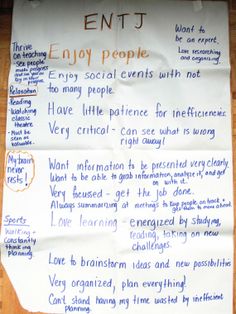 ENTJ
Want to
be an expert.
Love researching
and organizing.
Thrive
on teaching
- see people
make progress
Enjoy people
Enjoy social events with not
too many people.
Relaxation
- Reading
- Watching
classic
theatre
- Must be
seen as
valuable.
Have little patience for inefficiencies
Very critical - can see what is wrong
right away!
My brain
never
rests!
Want information to be presented very clearly
Want to be able to grab information, analyze it, and get
on with it.
Very focused - get the job done.
Always summarizing at meetings to keep people on track +
get them to move ahead.
Sports
walking +
constantly
thinking
planning.
Love learning - energized by studying,
reading, taking on new
challenges.
Love to brainstorm ideas and new possibilities
Very organized, plan everything!
Can't stand having my time wasted by inefficient
planning.